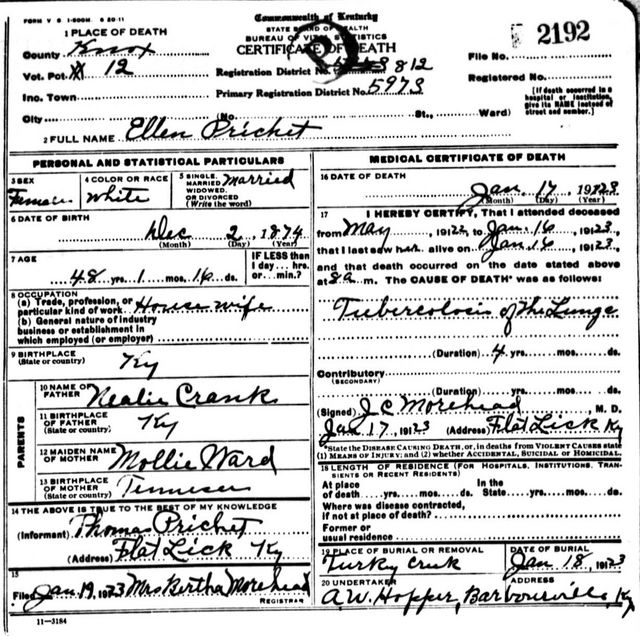 FORM V. S. 1-500M. 6 20-11
Commonwealth of Kentucky
STATE BOARD OF HEALTH
BUREAU OF VITAL STATISTICS
CERTIFICATE OF DEATH
2192
1 PLACE OF DEATH
County Knox
Vot. Pct. 12
Inc. Town
City No. St., Ward)
Registration District No. 812
Primary Registration District No. 5973
File No.
Registered No.
[If death occurred in a
hospital or institution,
give its NAME instead of
street and number.]
2 FULL NAME Ellen Prichet
PERSONAL AND STATISTICAL PARTICULARS
3 SEX
Female
4 COLOR OR RACE
White
5 SINGLE,
MARRIED,
WIDOWED,
OR DIVORCED
(Write the word)
Married
6 DATE OF BIRTH
Dec 2, 1874
(Month) (Day) (Year)
7 AGE
48 yrs. 1 mos. 16 ds.
IF LESS than
1 day... hrs.
or... min.?
8 OCCUPATION
(a) Trade, profession, or
particular kind of work. House wife
(b) General nature of industry
business or establishment in
which employed (or employer)
9 BIRTHPLACE
(State or country) Ky
PARENTS
10 NAME OF
FATHER Nealie Crank
11 BIRTHPLACE
OF FATHER
(State or country) Ky
12 MAIDEN NAME
OF MOTHER Mollie Ward
13 BIRTHPLACE
OF MOTHER
(State or country) Tennessee
14 THE ABOVE IS TRUE TO THE BEST OF MY KNOWLEDGE
(Informant) Thomas Prichet
(Address) Flat Lick Ky
15
Filed Jan 19, 1923 Mrs Bertha Morehead
REGISTRAR
11-3184
MEDICAL CERTIFICATE OF DEATH
16 DATE OF DEATH
Jan 17, 1923
(Month) (Day) (Year)
17 I HEREBY CERTIFY, That I attended deceased
from May, 1922 to Jan 16, 1923,
that I last saw her alive on Jan 16, 1923,
and that death occurred on the date stated above
at 8 a m. The CAUSE OF DEATH* was as follows:
Tubercolosis of the Lungs
(Duration) 4 yrs. mos. ds.
Contributory
(SECONDARY)
(Duration) yrs. mos. ds.
(Signed) J C Morehead, M. D.
Jan 17, 1923 (Address) Flat Lick Ky
*State the DISEASE CAUSING DEATH, or, in deaths from VIOLENT CAUSES state
(1) MEANS OF INJURY; and (2) whether ACCIDENTAL, SUICIDAL or HOMICIDAL.
18 LENGTH OF RESIDENCE (FOR HOSPITALS, INSTITUTIONS, TRANSIENTS OR RECENT RESIDENTS)
At place of death yrs. mos. ds. In the State yrs. mos. ds.
Where was disease contracted,
if not at place of death?
Former or
usual residence
19 PLACE OF BURIAL OR REMOVAL
Turky Creek
DATE OF BURIAL
Jan 18, 1923
20 UNDERTAKER
A.W. Hopper,
ADDRESS
Barbourville, Ky